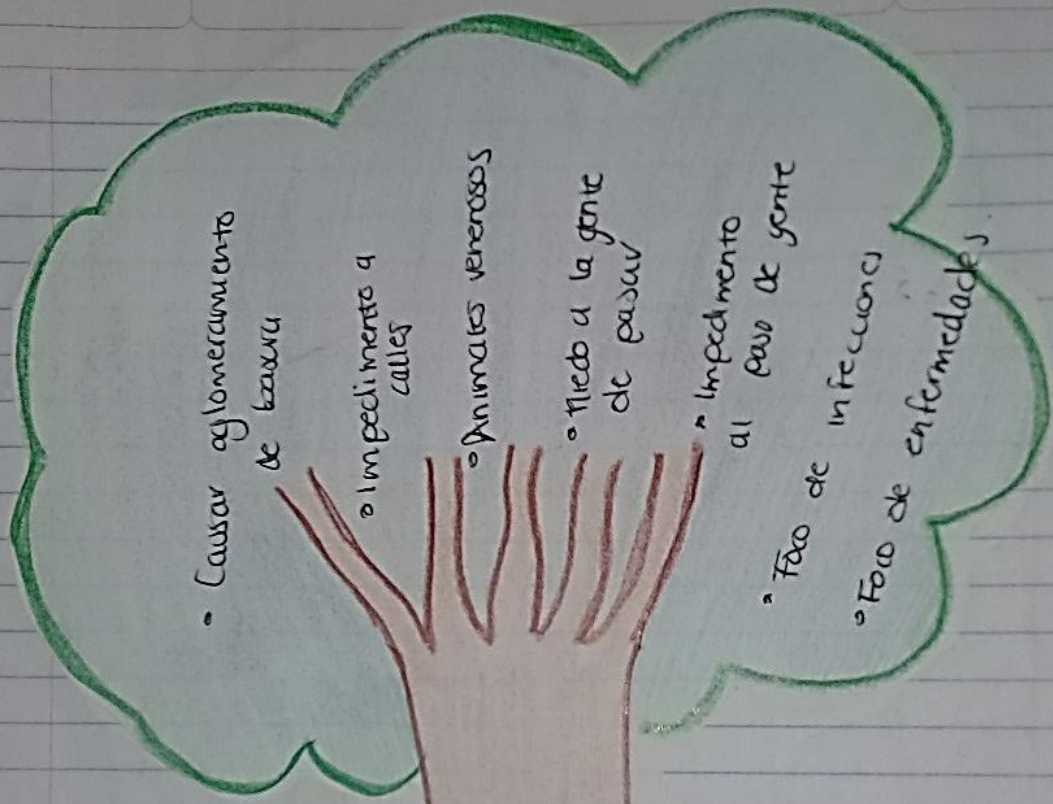 • Causar aglomeramiento
de basura
• Impedimento a
calles
• Animales venenosos
• Miedo a la gente
de pasar
• Impedimento
al paso de gente
• Foco de infecciones
• Foco de enfermedades